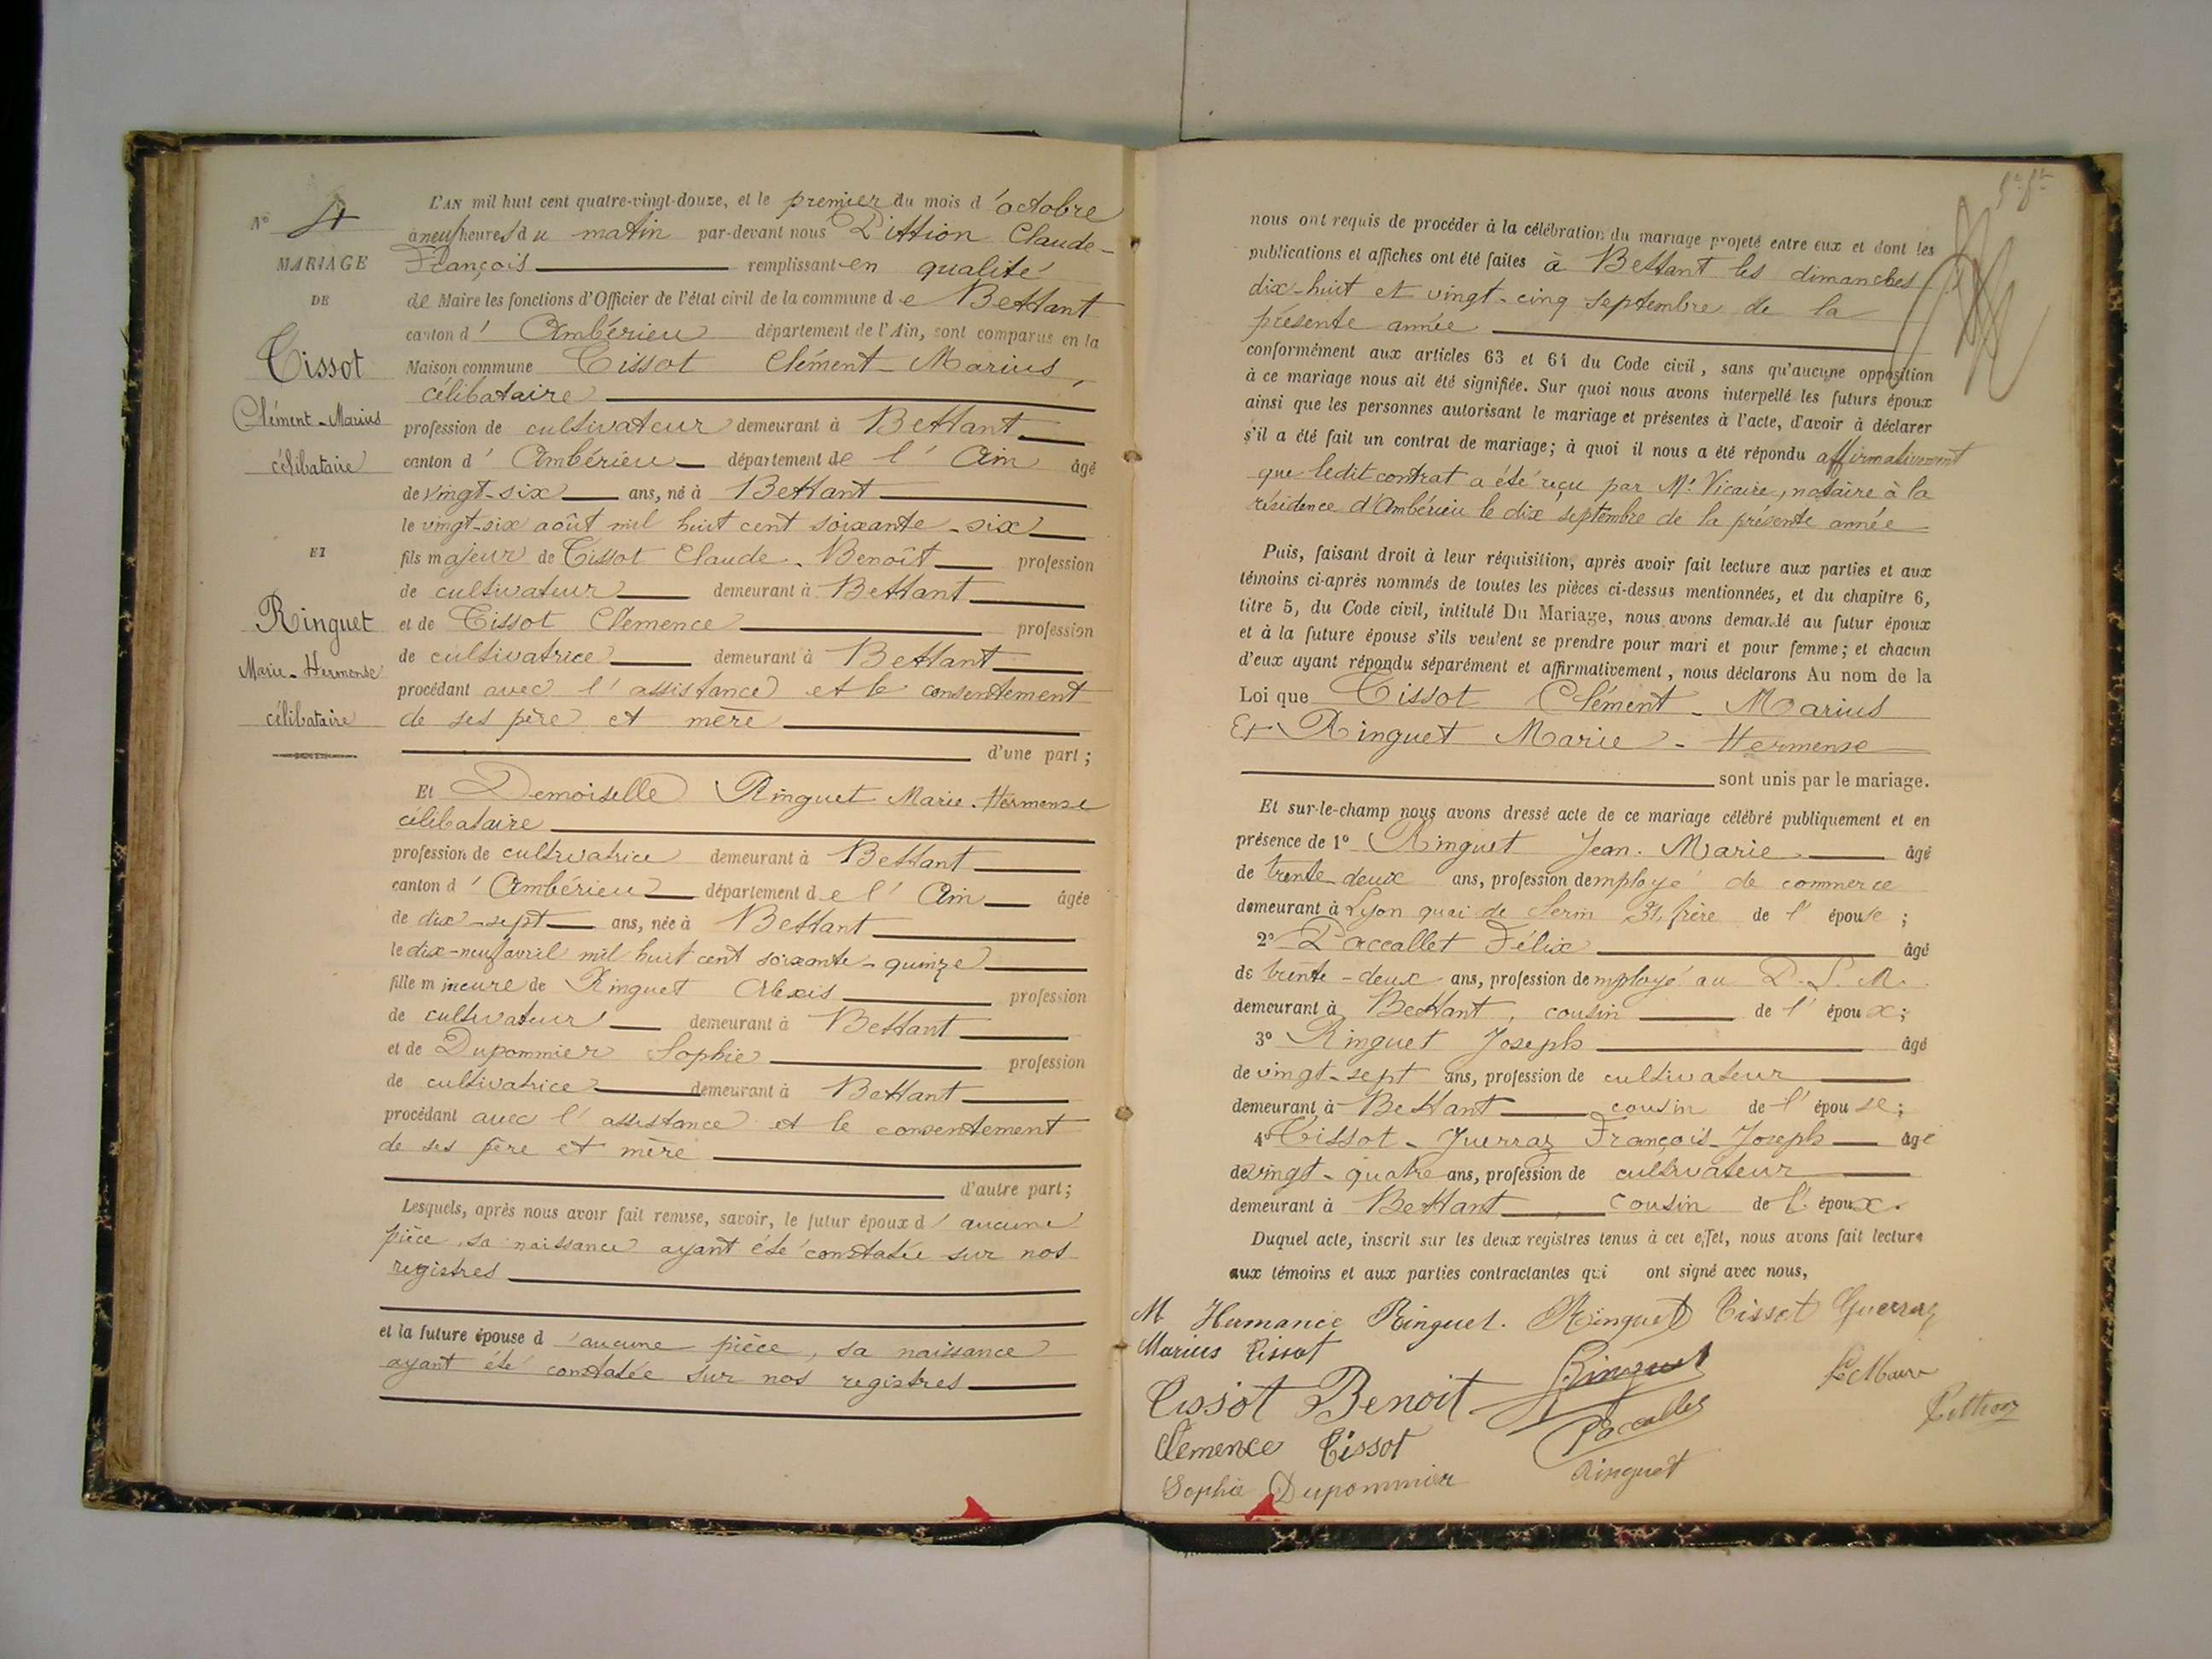 N° 4
MARIAGE
DE
Tissot
Clément-Marius
célibataire
ET
Ringuet
Marie-Hermense
célibataire
L'AN mil huit cent quatre-vingt-douze, et le premier du mois d'octobre
à neuf heures du matin par-devant nous Pittion Claude-
François remplissant en qualité
de Maire les fonctions d'Officier de l'état civil de la commune de Bettant
canton d'Ambérieu département de l'Ain, sont comparus en la
Maison commune Tissot Clément-Marius,
célibataire
profession de cultivateur demeurant à Bettant
canton d'Ambérieu département de l'Ain âgé
de vingt-six ans, né à Bettant
le vingt-six août mil huit cent soixante-six
fils majeur de Tissot Claude-Benoît profession
de cultivateur demeurant à Bettant
et de Tissot Clémence profession
de cultivatrice demeurant à Bettant
procédant avec l'assistance et le consentement
de ses père et mère
d'une part;
Et Demoiselle Ringuet Marie-Hermense
célibataire
profession de cultivatrice demeurant à Bettant
canton d'Ambérieu département de l'Ain âgée
de dix-sept ans, née à Bettant
le dix-neuf avril mil huit cent soixante-quinze
fille mineure de Ringuet Alexis profession
de cultivateur demeurant à Bettant
et de Dupommier Sophie profession
de cultivatrice demeurant à Bettant
procédant avec l'assistance et le consentement
de ses père et mère
d'autre part;
Lesquels, après nous avoir fait remise, savoir, le futur époux d'aucune
pièce, sa naissance ayant été constatée sur nos
registres
et la future épouse d'aucune pièce, sa naissance
ayant été constatée sur nos registres
nous ont requis de procéder à la célébration du mariage projeté entre eux et dont les
publications et affiches ont été faites à Bettant les dimanches
dix-huit et vingt-cinq septembre de la
présente année
conformément aux articles 63 et 64 du Code civil, sans qu'aucune opposition
à ce mariage nous ait été signifiée. Sur quoi nous avons interpellé les futurs époux
ainsi que les personnes autorisant le mariage et présentes à l'acte, d'avoir à déclarer
s'il a été fait un contrat de mariage; à quoi il nous a été répondu affirmativement
que ledit contrat a été reçu par Me Vicaire, notaire à la
résidence d'Ambérieu le dix septembre de la présente année
Puis, faisant droit à leur réquisition, après avoir fait lecture aux parties et aux
témoins ci-après nommés de toutes les pièces ci-dessus mentionnées, et du chapitre 6,
titre 5, du Code civil, intitulé Du Mariage, nous avons demandé au futur époux
et à la future épouse s'ils veulent se prendre pour mari et pour femme; et chacun
d'eux ayant répondu séparément et affirmativement, nous déclarons Au nom de la
Loi que Tissot Clément-Marius
Et Ringuet Marie-Hermense
sont unis par le mariage.
Et sur-le-champ nous avons dressé acte de ce mariage célébré publiquement et en
présence de 1° Ringuet Jean-Marie âgé
de trente deux ans, profession d'employé de commerce
demeurant à Lyon quai de Serin 31, frère de l'épouse;
2° Paccallet Félix âgé
de trente-deux ans, profession d'employé au P. L. M.
demeurant à Bettant, cousin de l'époux;
3° Ringuet Joseph âgé
de vingt-sept ans, profession de cultivateur
demeurant à Bettant cousin de l'épouse;
4° Tissot-Guerraz François-Joseph âgé
de vingt-quatre ans, profession de cultivateur
demeurant à Bettant cousin de l'époux.
Duquel acte, inscrit sur les deux registres tenus à cet effet, nous avons fait lecture
aux témoins et aux parties contractantes qui ont signé avec nous,
M Hermance Ringuet. Ringuet Tissot Guerraz
Marius Tissot Ringuet Le Maire
Tissot Benoit Paccallet Pittion
Clemence Tissot Ringuet
Sophie Dupommier